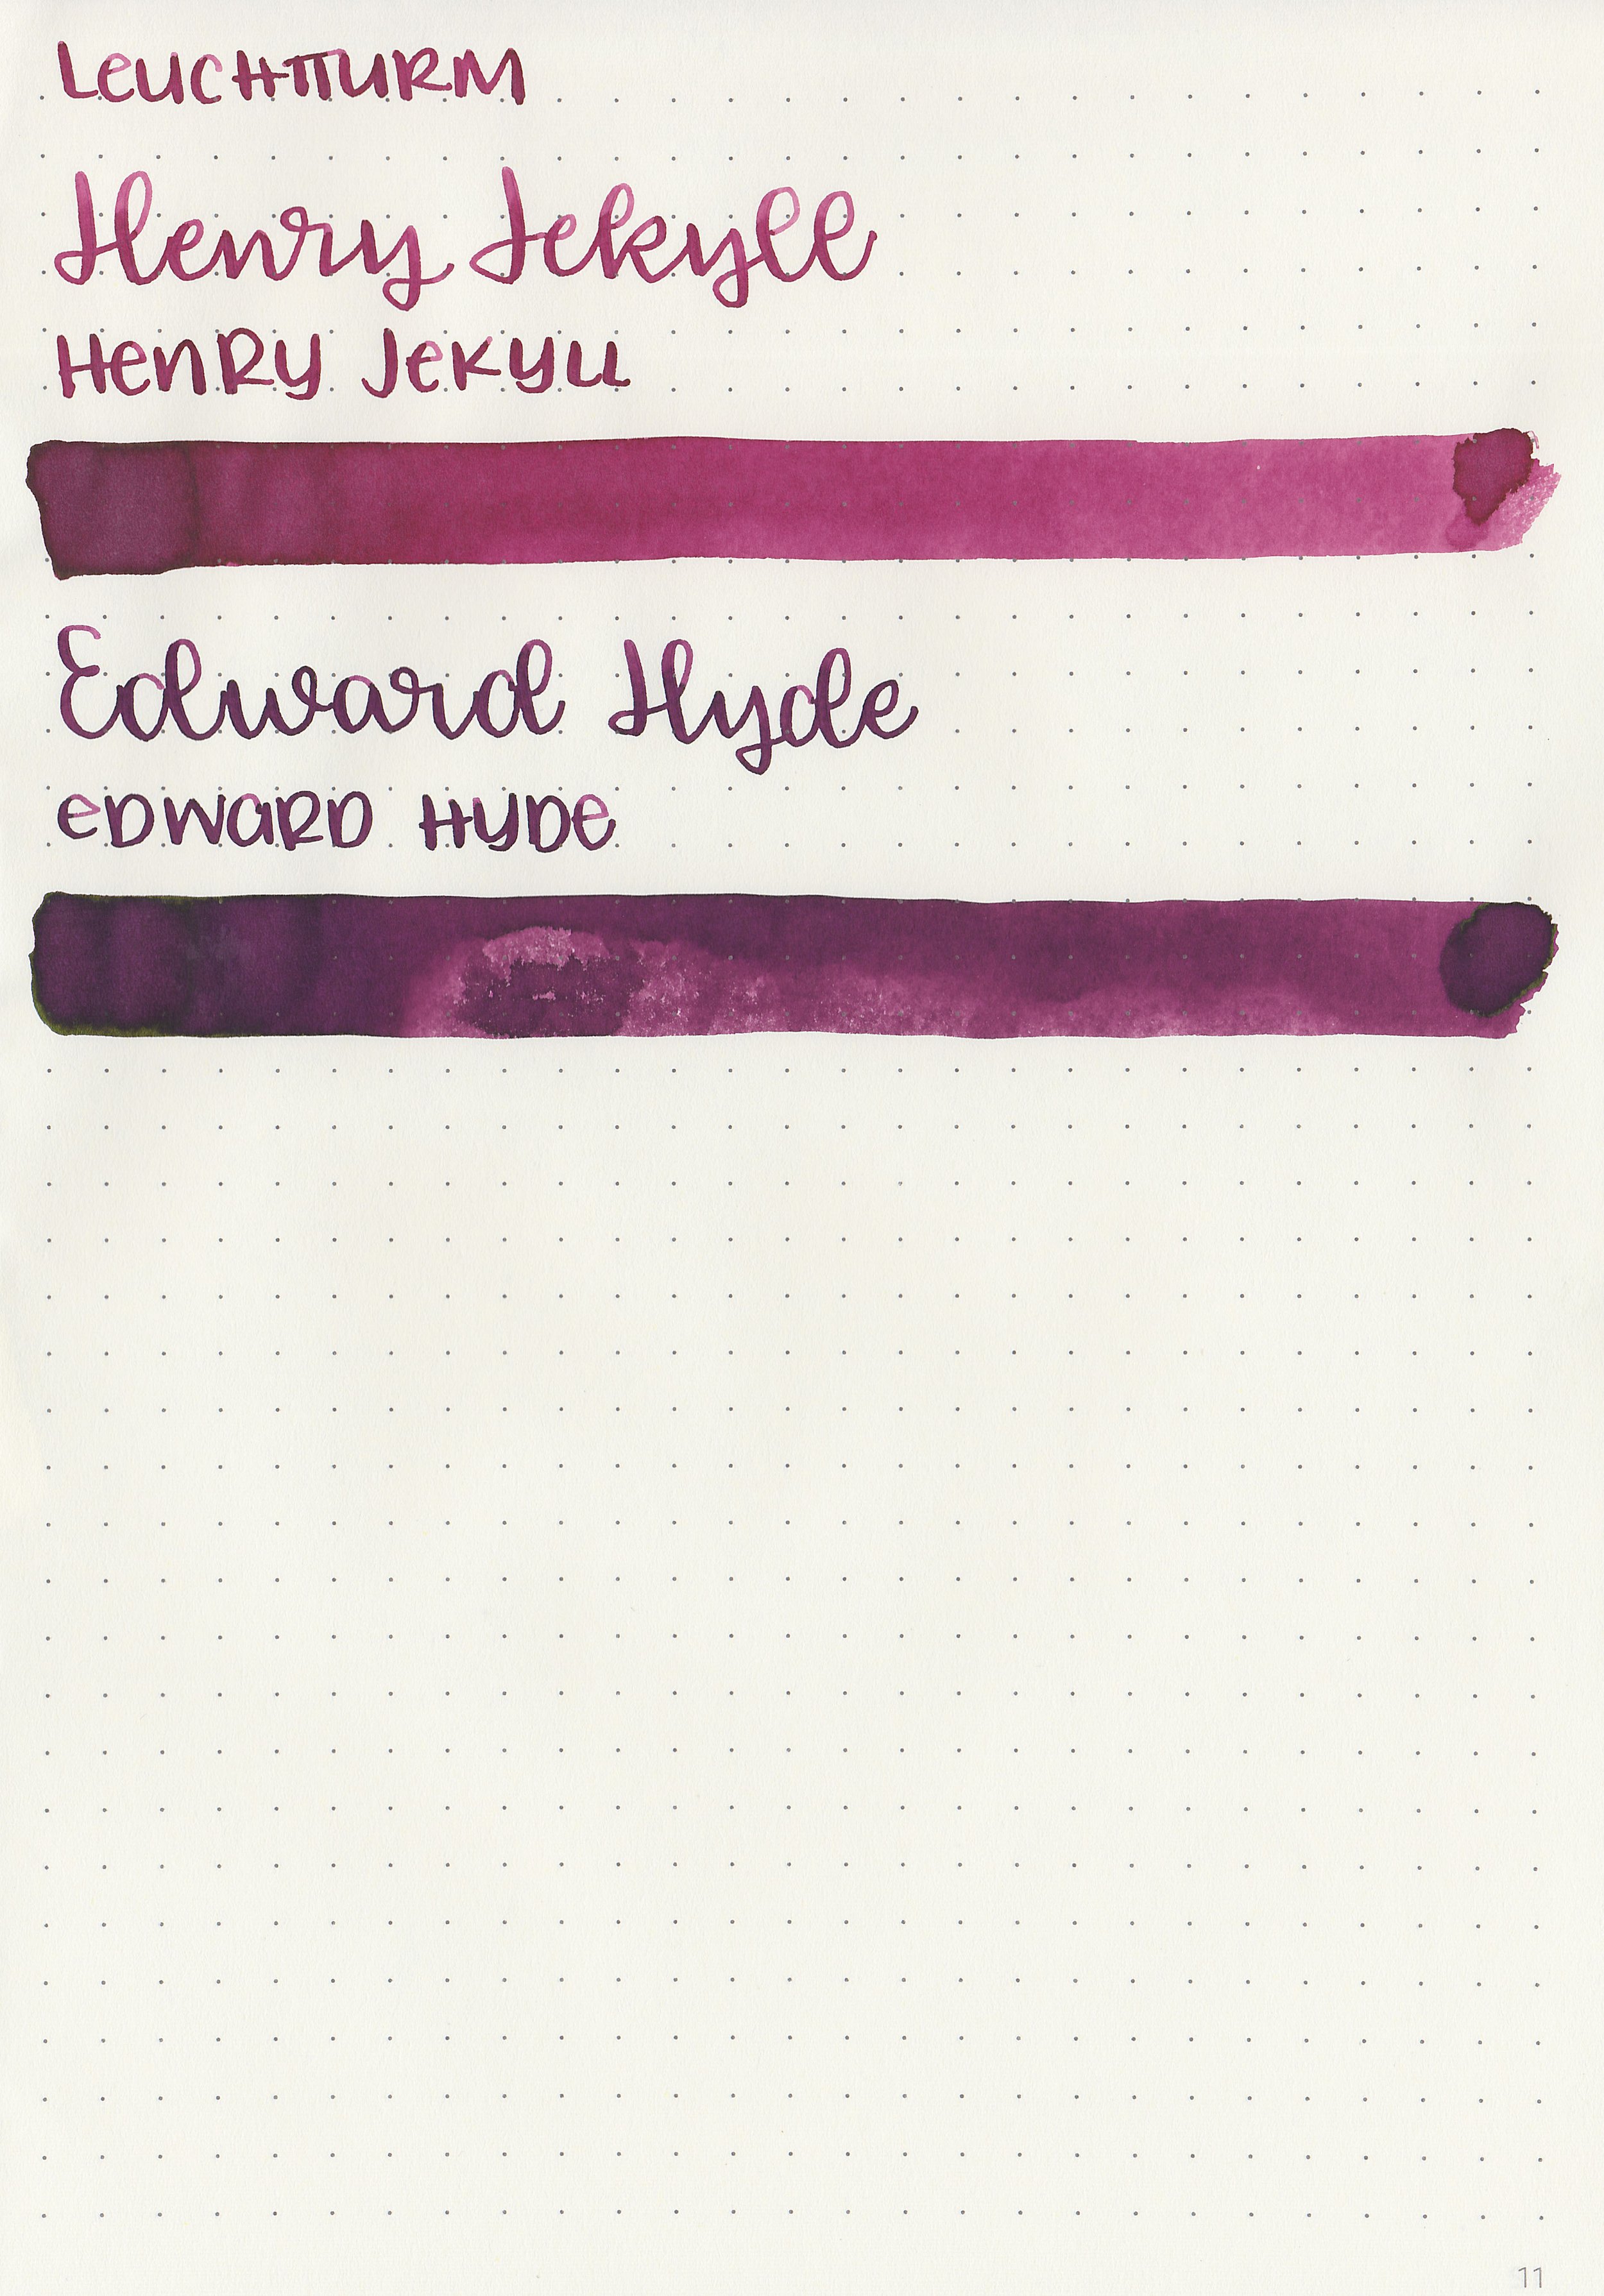 LEUCHTTURM
Henry Jekyll
HENRY JEKYLL
Edward Hyde
EDWARD HYDE
11